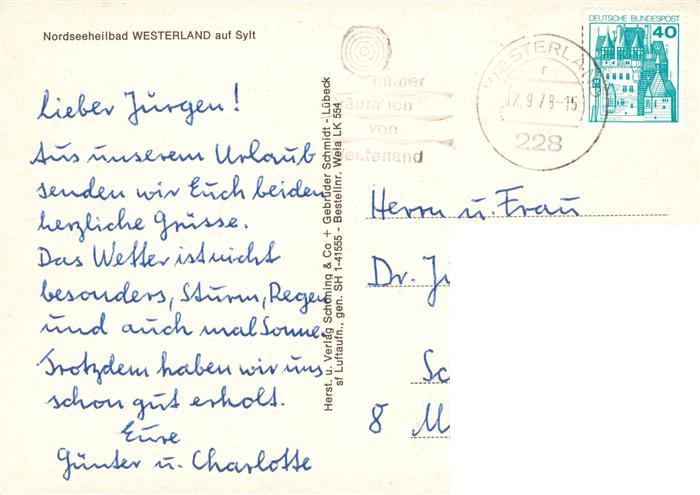 Nordseeheilbad WESTERLAND auf Sylt
Lieber Jürgen!
Aus unserem Urlaub
senden wir Euch beiden
herzliche Grüsse.
Das Wetter ist nicht
besonders, Sturm, Regen
und auch mal Sonne.
Trotzdem haben wir uns
schon gut erholt.
Eure
Günter u. Charlotte
Herst. u. Verlag Schöning & Co + Gebrüder Schmidt - Lübeck
sf Luftaufn., gen. SH 1-41555 - Bestellnr. Wela LK 554
Immer
träum' ich
von
Westerland
WESTERLAND
r
12.9.79-15
228
DEUTSCHE BUNDESPOST
40
Herrn u. Frau
Dr. Jü
Sc
8 M